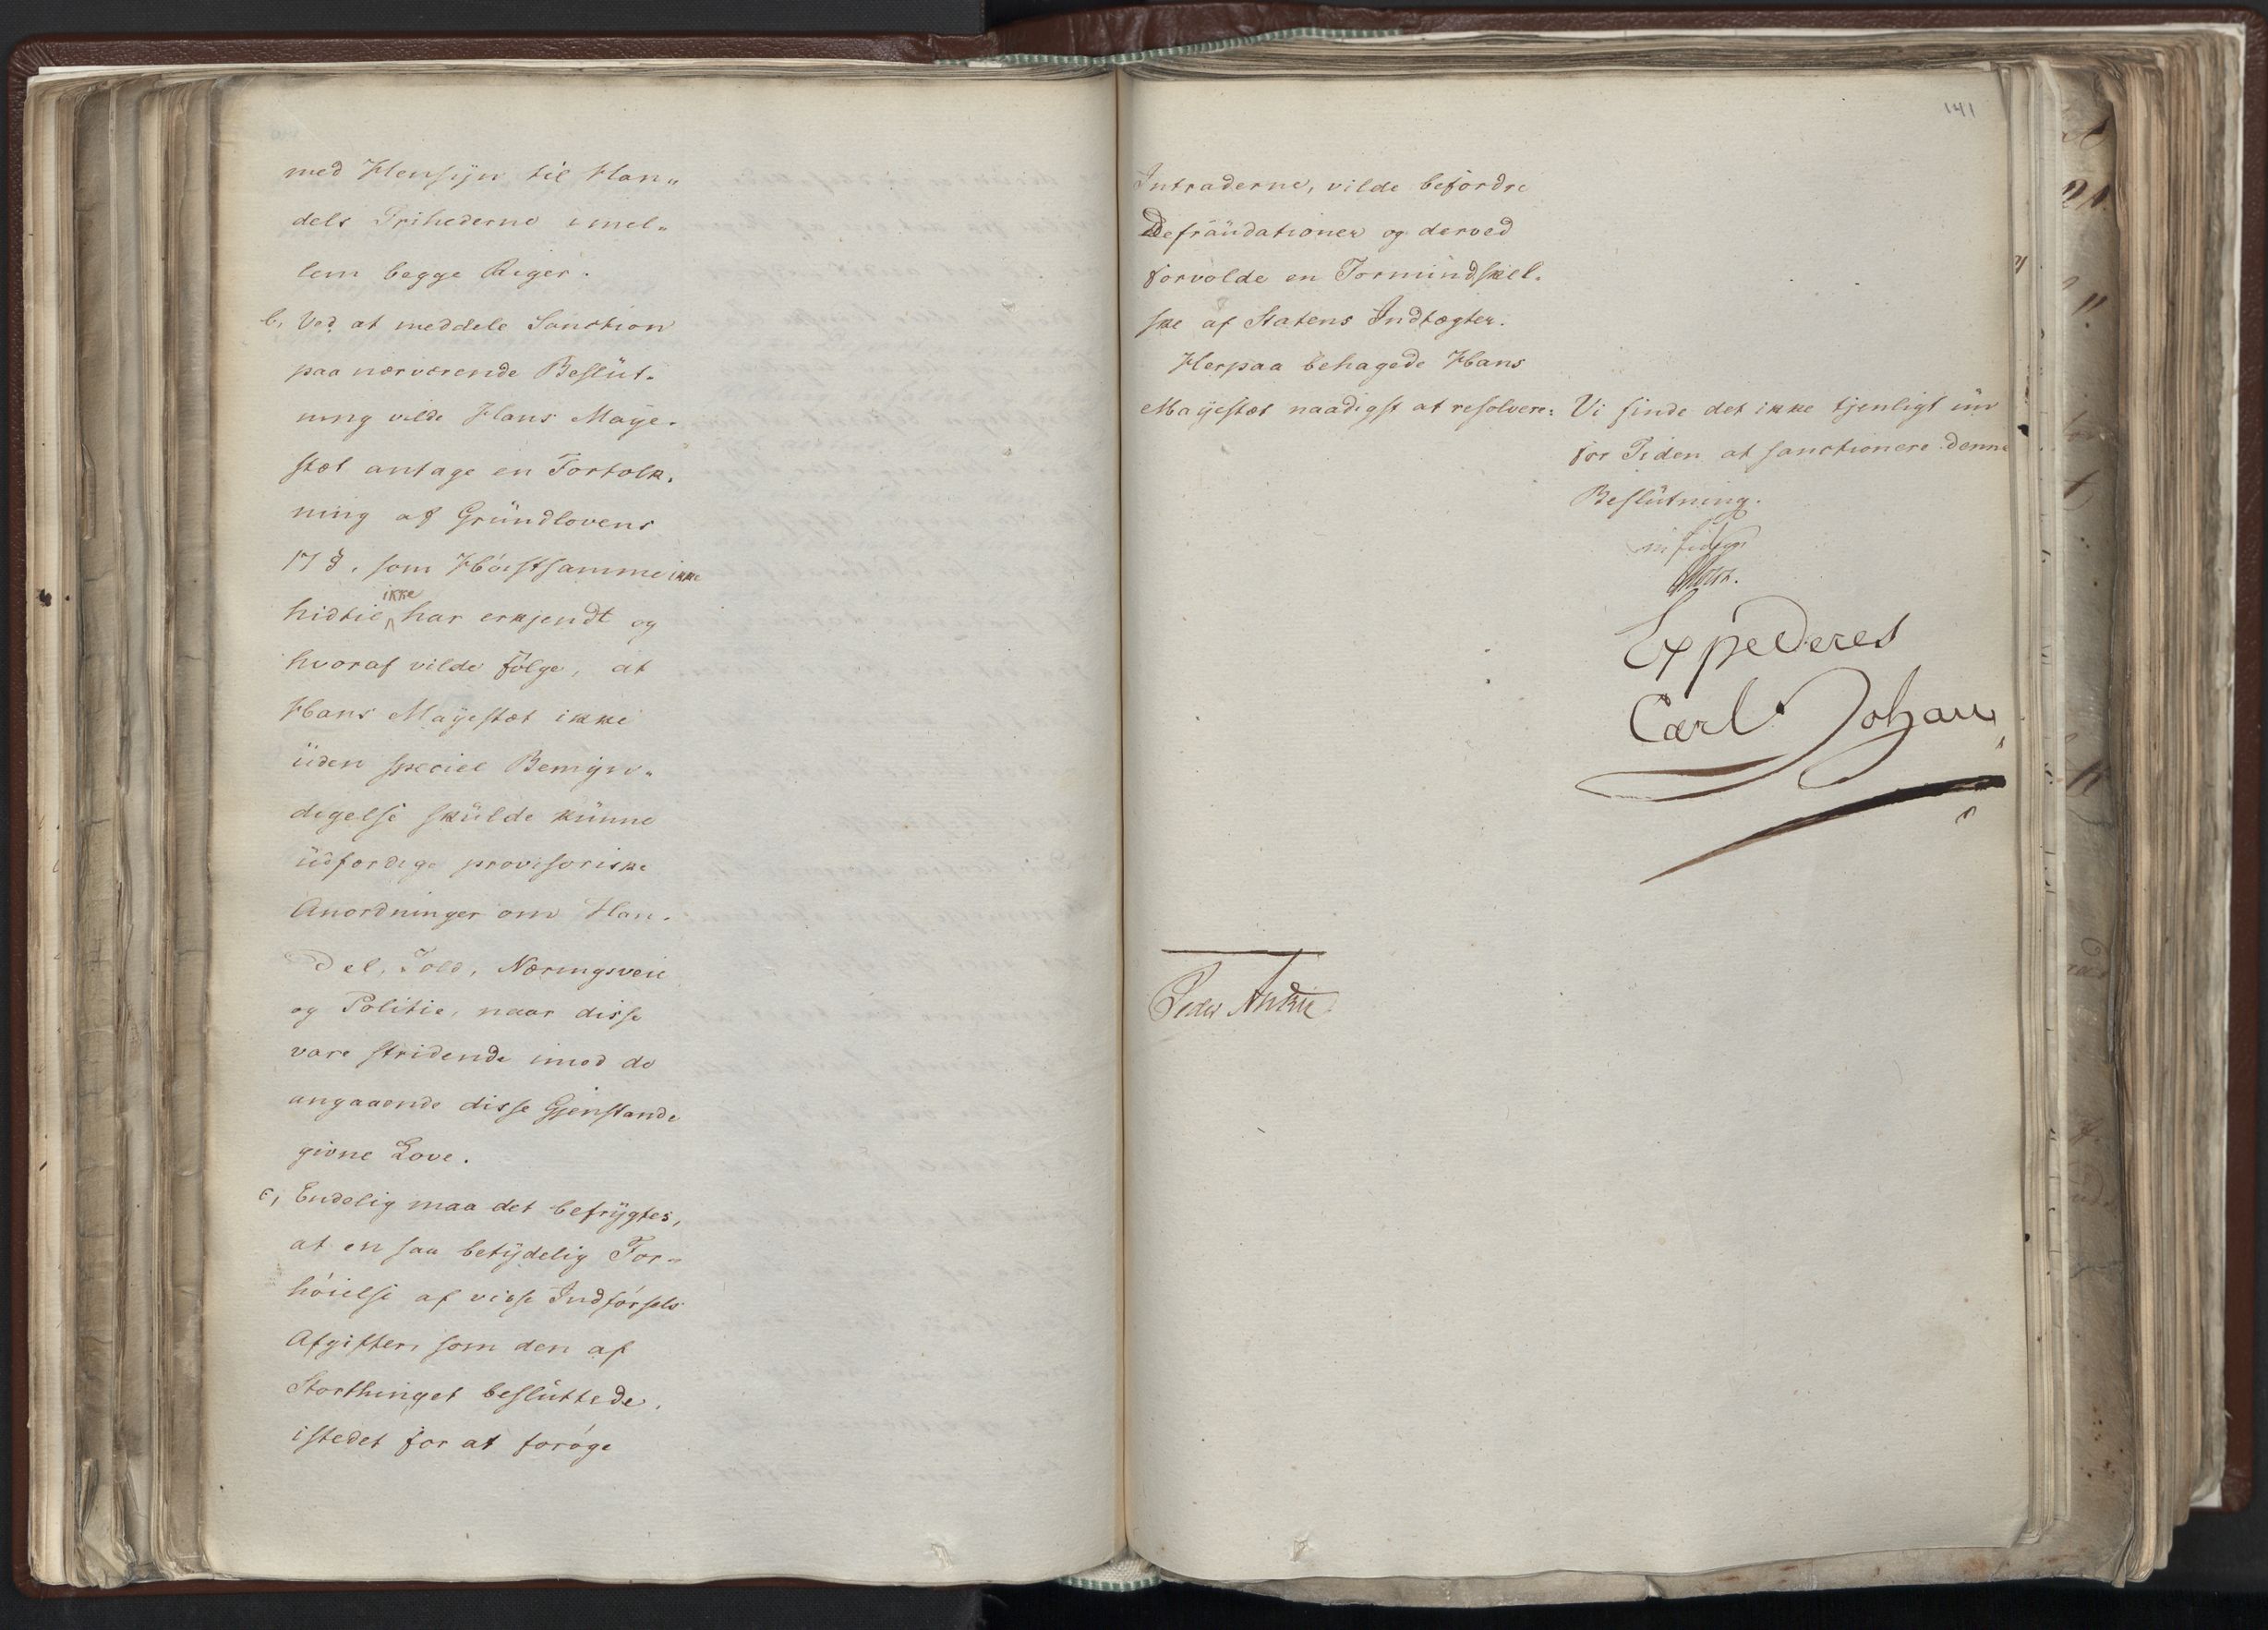 med Hensÿn til Han„
dels Frihederne imel„
lem begge Riger.
b, Ved at meddele Sanction
paa nærværende Beslut„
ning vilde Hans Maÿe„
stæt antage en Fortolk„
ning af Grundlovens
17 §. som Høistsamme ikke
hidtil ikke har erkjendt og
hvoraf vilde følge, at
Hans Maÿestæt ikke
uden speciel Bemÿn„
digelse skulde kunne
udfærdige provisoriske
Anordninger om Han„
del, Told, Næringsveie
og Politie, naar disse
vare stridende imod de
angaaende disse Gjenstande
givne Love.
c, Endelig maa det befrÿgtes,
at en saa betÿdelig For„
høielse af visse Indførsels
Afgifter, som den af
Storthinget besluttede,
istedet for at forøge
141
Intraderne, vilde befordre
Defraudationer og derved
forvolde en Formindskel„
ske af Statens Indtægter.
Herpaa behagede Hans
Maÿestæt naadigst at resolvere: Vi finde det ikke tjenligt un
for Tiden at sanctionere denne
Beslutning.
Expederes
Carl Johan
Peder Anker